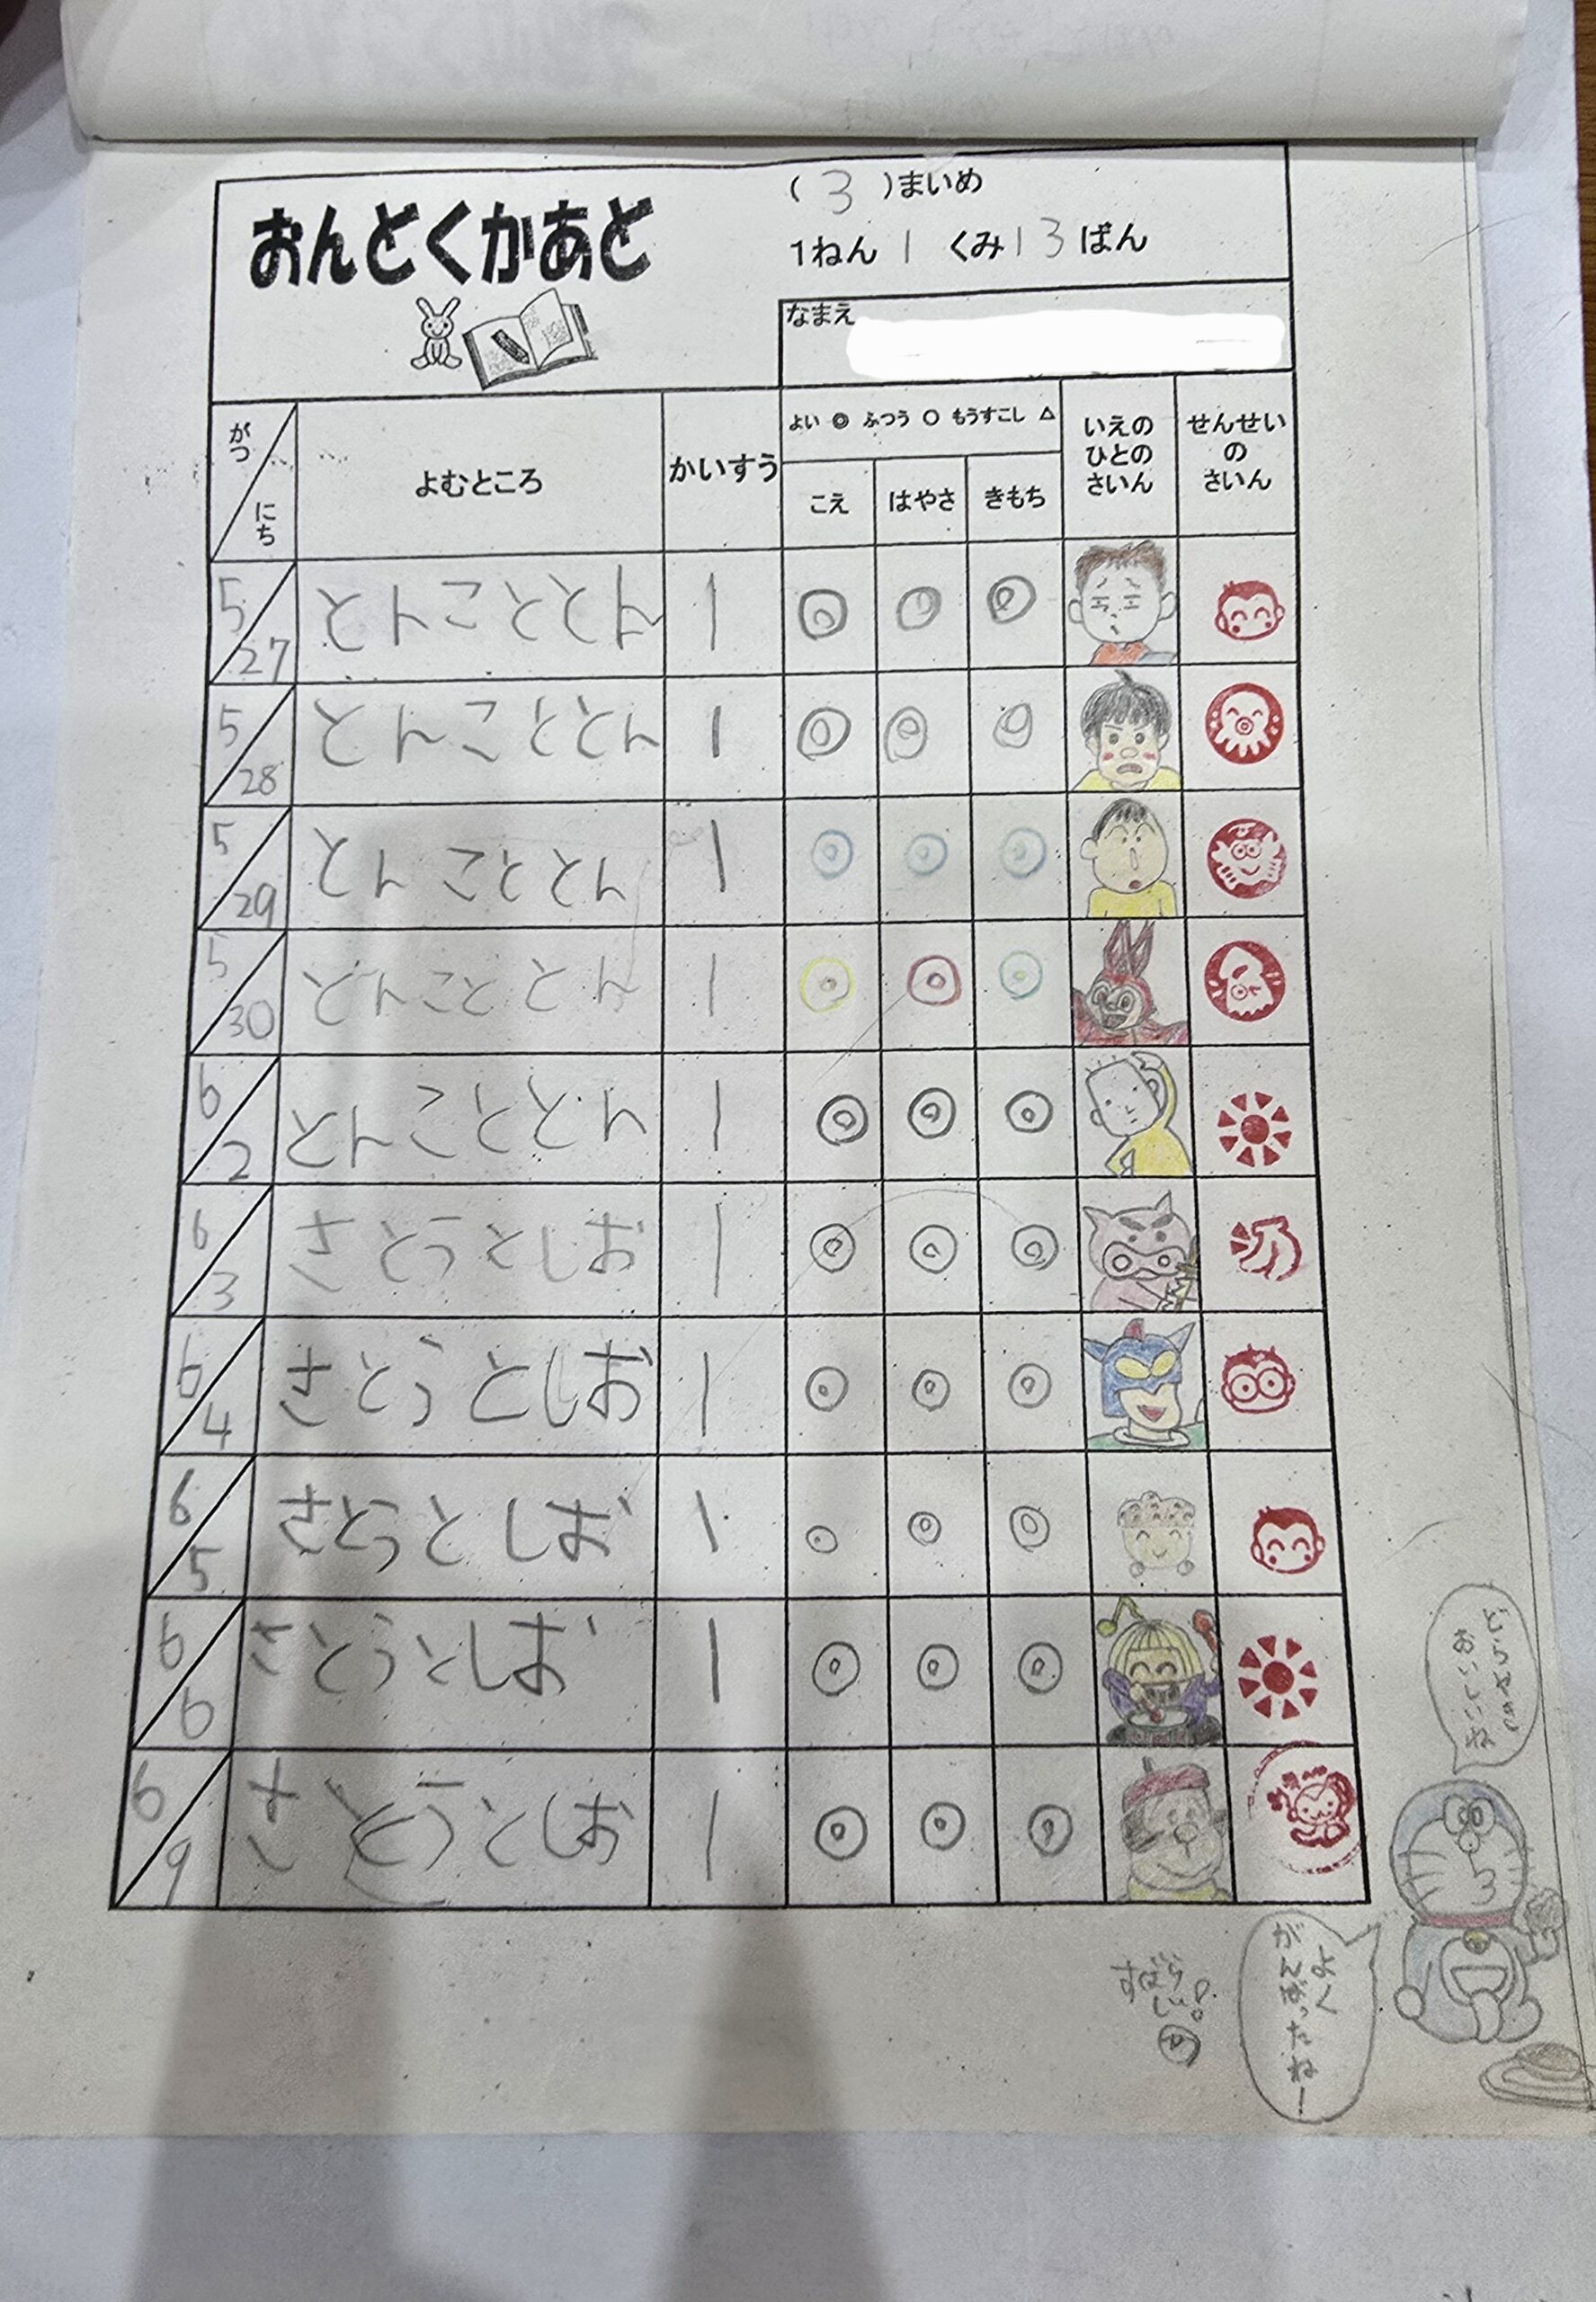 おんどくかあど
( 3 )まいめ
1ねん 1 くみ 13 ばん
なまえ
がつ にち
よむところ
かいすう
よい ◎ ふつう ○ もうすこし △
こえ
はやさ
きもち
いえの
ひとの
さいん
せんせい
の
さいん
5/27 とんこととん 1 ◎ ◎ ◎
5/28 とんこととん 1 ◎ ◎ ◎
5/29 とんこととん 1 ◎ ◎ ◎
5/30 とんこととん 1 ◎ ◎ ◎
6/2 とんこととん 1 ◎ ◎ ◎
6/3 さとうとしお 1 ◎ ◎ ◎
6/4 さとうとしお 1 ◎ ◎ ◎
6/5 さとうとしお 1 ◎ ◎ ◎
6/6 さとうとしお 1 ◎ ◎ ◎
6/9 さとうとしお 1 ◎ ◎ ◎
どらやき
おいしいね
よく
がんばったねー
すばら
しい!